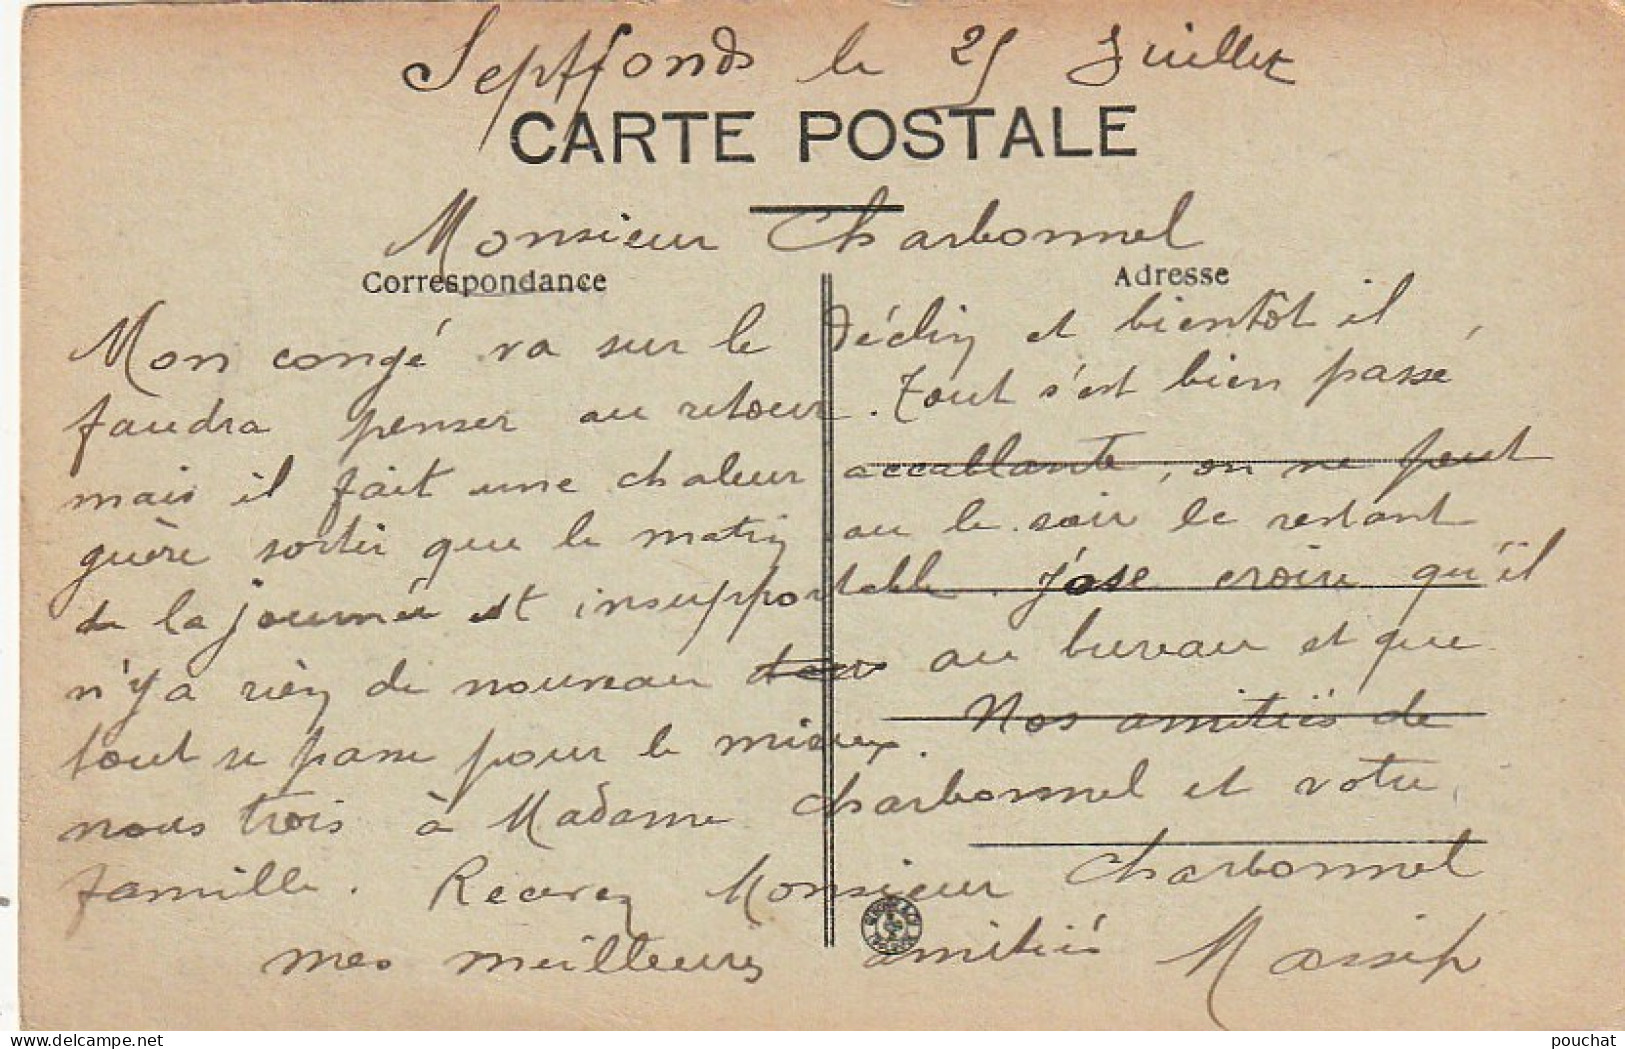 Septfonds le 25 Juillet
CARTE POSTALE
Monsieur Charbonnel
Correspondance
Adresse
Mon congé va sur le déclin et bientôt il
faudra penser au retour. Tout s'est bien passé
mais il fait une chaleur accablante, on ne peut
guère sortir que le matin ou le soir le restant
de la journée est insupportable. J'ose croire qu'il
n'y a rien de nouveau au bureau et que
tout se passe pour le mieux. Nos amitiés de
nous trois à Madame Charbonnel et votre
famille. Recevez Monsieur Charbonnel
mes meilleures amitiés Massip
delcampe.net
pouchat